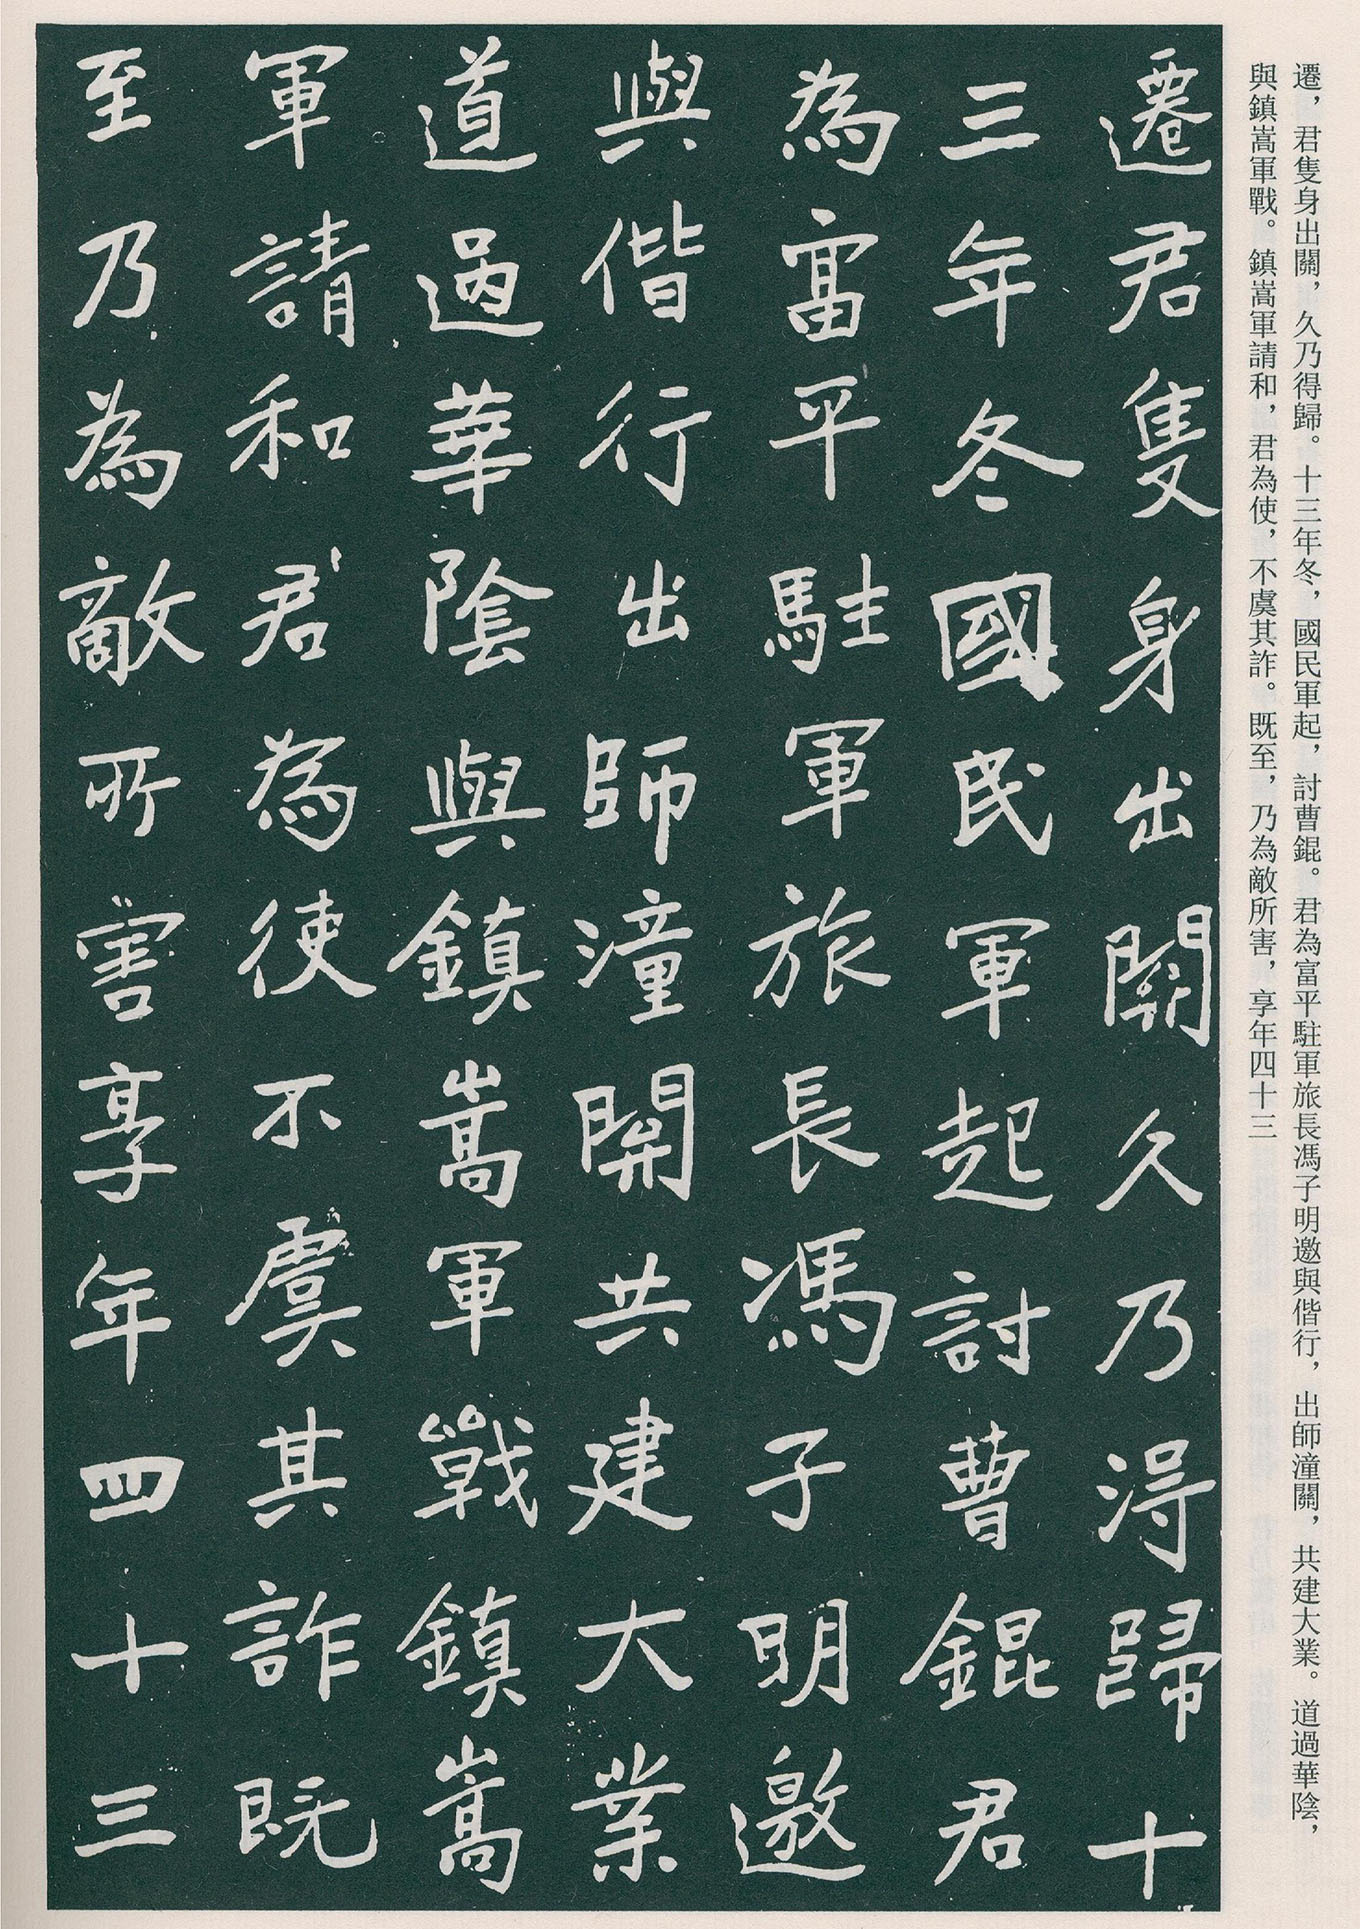 遷，君隻身出關，久乃得歸。十三年冬，國民軍起，討曹錕。君為富平駐軍旅長馮子明邀與偕行，出師潼關，共建大業。道過華陰，
與鎮嵩軍戰。鎮嵩軍請和，君為使，不虞其詐。既至，乃為敵所害，享年四十三
遷君隻身出關久乃得歸十
三年冬國民軍起討曹錕君
為富平駐軍旅長馮子明邀
與偕行出師潼關共建大業
道過華陰與鎮嵩軍戰鎮嵩
軍請和君為使不虞其詐既
至乃為敵所害享年四十三